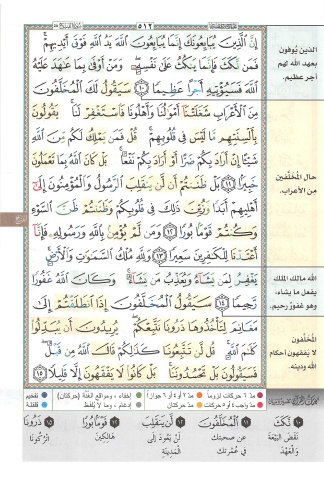 ٥١٢
إِنَّ ٱلَّذِينَ يُبَايِعُونَكَ إِنَّمَا يُبَايِعُونَ ٱللَّهَ يَدُ ٱللَّهِ فَوْقَ أَيْدِيهِمْ ۚ
فَمَن نَّكَثَ فَإِنَّمَا يَنكُثُ عَلَىٰ نَفْسِهِۦ ۖ وَمَنْ أَوْفَىٰ بِمَا عَٰهَدَ عَلَيْهُ
ٱللَّهَ فَسَيُؤْتِيهِ أَجْرًا عَظِيمًا ١٠ سَيَقُولُ لَكَ ٱلْمُخَلَّفُونَ
مِنَ ٱلْأَعْرَابِ شَغَلَتْنَآ أَمْوَٰلُنَا وَأَهْلُونَا فَٱسْتَغْفِرْ لَنَا ۚ يَقُولُونَ
بِأَلْسِنَتِهِم مَّا لَيْسَ فِى قُلُوبِهِمْ ۚ قُلْ فَمَن يَمْلِكُ لَكُم مِّنَ ٱللَّهِ
شَيْـًٔا إِنْ أَرَادَ بِكُمْ ضَرًّا أَوْ أَرَادَ بِكُمْ نَفْعًۢا ۚ بَلْ كَانَ ٱللَّهُ بِمَا تَعْمَلُونَ
خَبِيرًۢا ١١ بَلْ ظَنَنتُمْ أَن لَّن يَنقَلِبَ ٱلرَّسُولُ وَٱلْمُؤْمِنُونَ إِلَىٰٓ
أَهْلِيهِمْ أَبَدًا وَزُيِّنَ ذَٰلِكَ فِى قُلُوبِكُمْ وَظَنَنتُمْ ظَنَّ ٱلسَّوْءِ
وَكُنتُمْ قَوْمًۢا بُورًا ١٢ وَمَن لَّمْ يُؤْمِنۢ بِٱللَّهِ وَرَسُولِهِۦ فَإِنَّآ
أَعْتَدْنَا لِلْكَٰفِرِينَ سَعِيرًا ١٣ وَلِلَّهِ مُلْكُ ٱلسَّمَٰوَٰتِ وَٱلْأَرْضِ ۚ
يَغْفِرُ لِمَن يَشَآءُ وَيُعَذِّبُ مَن يَشَآءُ ۚ وَكَانَ ٱللَّهُ غَفُورًا
رَّحِيمًا ١٤ سَيَقُولُ ٱلْمُخَلَّفُونَ إِذَا ٱنطَلَقْتُمْ إِلَىٰ
مَغَانِمَ لِتَأْخُذُوهَا ذَرُونَا نَتَّبِعْكُمْ ۖ يُرِيدُونَ أَن يُبَدِّلُوا۟
كَلَٰمَ ٱللَّهِ ۚ قُل لَّن تَتَّبِعُونَا كَذَٰلِكُمْ قَالَ ٱللَّهُ مِن قَبْلُ ۖ
فَسَيَقُولُونَ بَلْ تَحْسُدُونَنَا ۚ بَلْ كَانُوا۟ لَا يَفْقَهُونَ إِلَّا قَلِيلًا ١٥
الذين يوفون
بعهد الله لهم
أجر عظيم.
حال المخلّفين
من الأعراب.
الله مالك الملك
يفعل ما يشاء،
وهو غفور رحيم.
المُخَلَّفون
لا يفقهون أحكام
الله ودينه.
مدّ ٦ حركات لزوماً مدّ ٢ أو ٤ أو ٦ جوازاً إخفاء، ومواقع الغنّة (حركتان) تفخيم
مدّ واجب ٤ أو ٥ حركات مدّ حركتان إدغام، وما لا يُلفظ قلقلة
١٠ نَكَثَ
نَقَضَ البَيْعَةَ
وَالعَهْدَ
١١ المُخَلَّفُونَ
عن صحبتك
في عُمْرتك
١٢ لَن يَنقَلِبَ
لَنْ يَعُودَ إلى
المَدينَة
١٢ قَوْمًا بُورًا
هَالِكِينَ
١٥ ذَرُونَا
اتْرُكُونَا